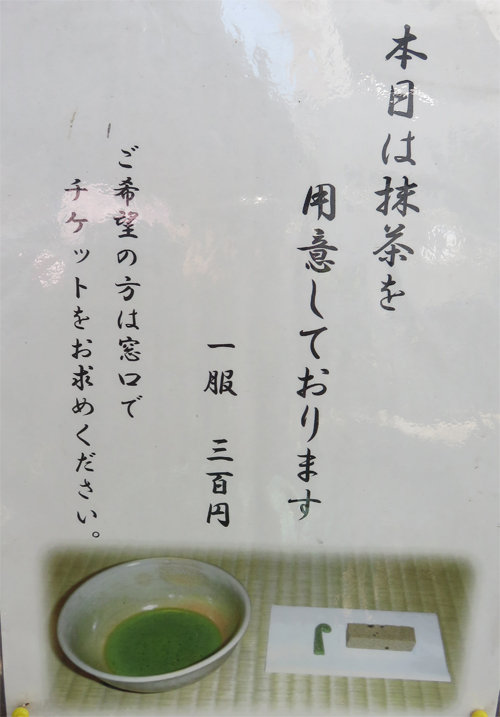 本日は抹茶を
用意しております
一服　三百円
ご希望の方は窓口で
チケットをお求めください。